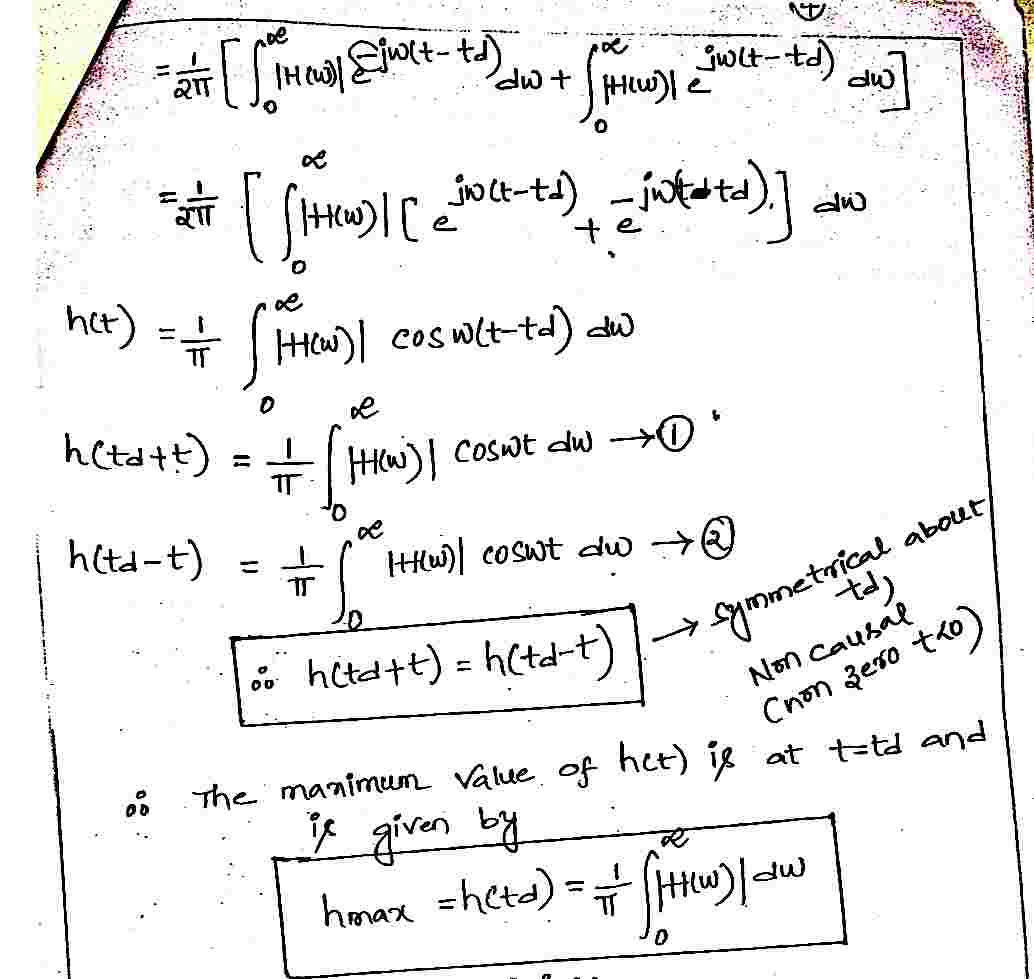 = 1/2π [ ∫₀^∞ |H(ω)| e^{-jω(t-td)} dω + ∫₀^∞ |H(ω)| e^{jω(t-td)} dω ]
= 1/2π [ ∫₀^∞ |H(ω)| [ e^{jω(t-td)} + e^{-jω(t-td)} ] dω
h(t) = 1/π ∫₀^∞ |H(ω)| cos ω(t-td) dω
h(td+t) = 1/π ∫₀^∞ |H(ω)| cosωt dω → ①
h(td-t) = 1/π ∫₀^∞ |H(ω)| cosωt dω → ②
∴ h(td+t) = h(td-t) → symmetrical about
td)
Non causal
(non zero t<0)
∴ The maximum value of h(t) is at t=td and
is given by
hmax = h(td) = 1/π ∫₀^∞ |H(ω)| dω